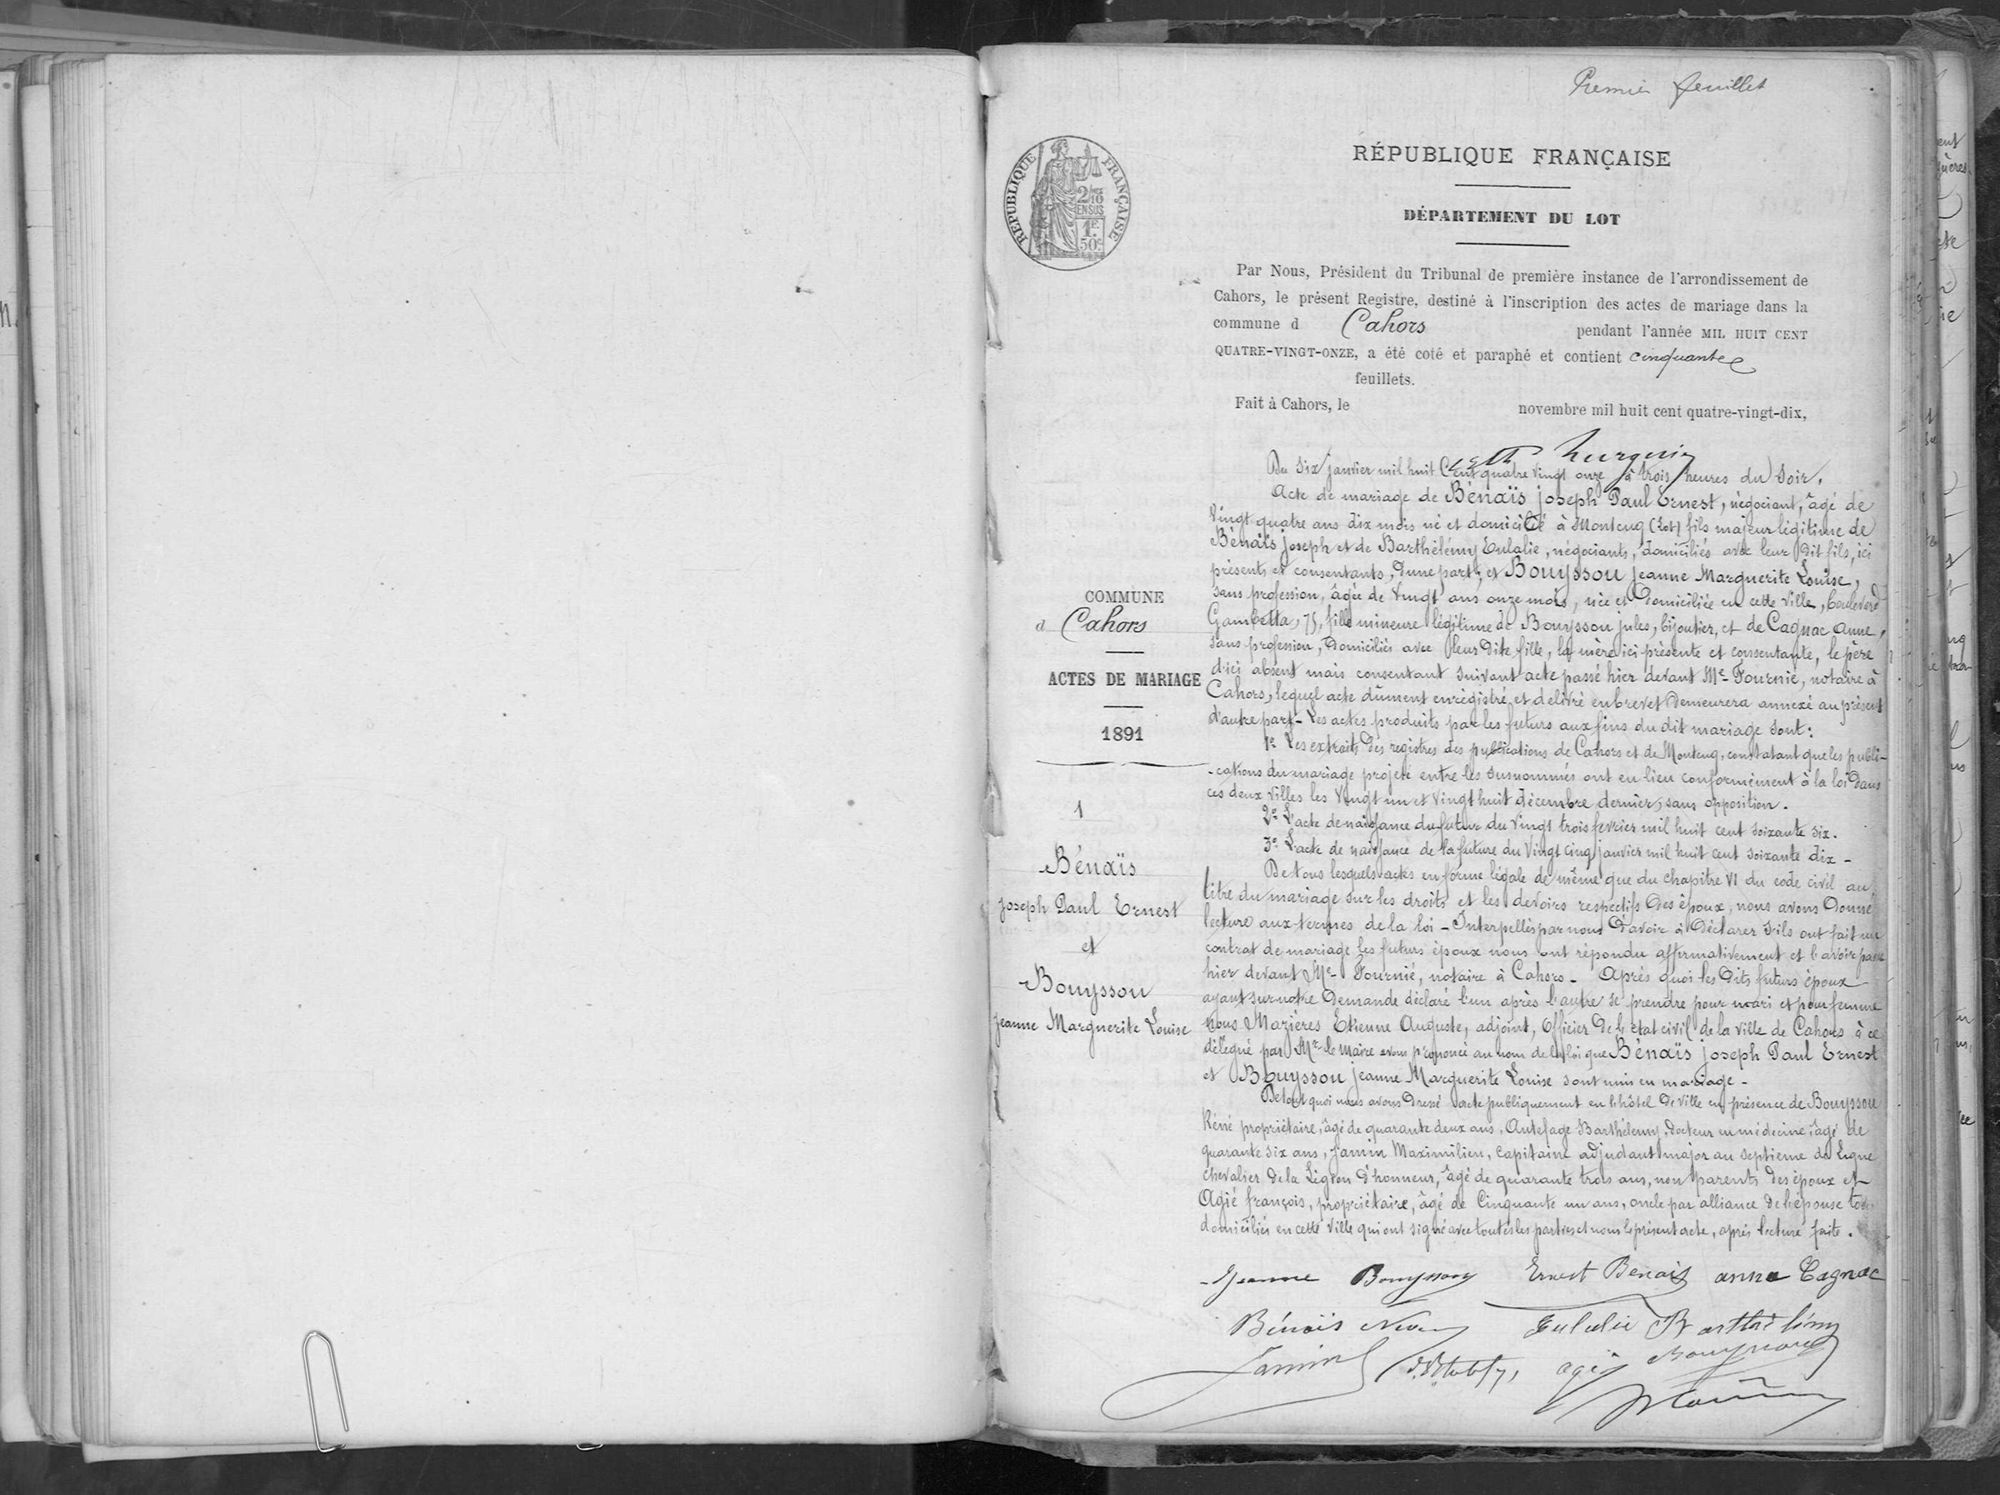 Premier feuillet
RÉPUBLIQUE FRANÇAISE
2/10 EN SUS
1F 50c
RÉPUBLIQUE FRANÇAISE
DÉPARTEMENT DU LOT
Par Nous, Président du Tribunal de première instance de l'arrondissement de
Cahors, le présent Registre, destiné à l'inscription des actes de mariage dans la
commune d Cahors pendant l'année MIL HUIT CENT
QUATRE-VINGT-ONZE, a été coté et paraphé et contient cinquante
feuillets.
Fait à Cahors, le novembre mil huit cent quatre-vingt-dix,
COMMUNE
d Cahors
ACTES DE MARIAGE
1891
1
Bénaïs
Joseph Paul Ernest
et
Bouyssou
Jeanne Marguerite Louise
Du six janvier mil huit Cent quatre vingt onze à trois heures du Soir.
Acte de mariage de Bénaïs Joseph Paul Ernest, négociant, âgé de
vingt quatre ans dix mois né et domicilié à Montcuq (Lot) fils majeur légitime de
Bénaïs Joseph et de Barthélémy Eulalie, négociants, domiciliés avec leur dit fils, ici
présents et consentants, d'une part; et Bouyssou Jeanne Marguerite Louise,
sans profession, âgée de vingt ans onze mois, née et domiciliée en cette ville, boulevard
Gambetta, 75, fille mineure légitime de Bouyssou Jules, bijoutier, et de Cagnac Anne,
sans profession, domiciliés avec leur dite fille, la mère ici présente et consentante, le père
d'ici absent mais consentant suivant acte passé hier devant Me Fournié, notaire à
Cahors, lequel acte dûment enregistré et délivré en brevet demeurera annexé au présent
d'autre part - Les actes produits par les futurs aux fins du dit mariage sont:
1e Les extraits des registres des publications de Cahors et de Montcuq, constatant que les publi-
-cations du mariage projeté entre les susnommés ont eu lieu conformément à la loi dans
ces deux villes les vingt un et vingt huit décembre dernier, sans opposition.
2e L'acte de naissance du futur du vingt trois février mil huit cent soixante six.
3e L'acte de naissance de la future du vingt cinq janvier mil huit cent soixante dix -
De tous lesquels actes en forme légale de même que du chapitre VI du code civil au
titre du mariage sur les droits et les devoirs respectifs des époux, nous avons donné
lecture aux termes de la loi - Interpellés par nous d'avoir à déclarer s'ils ont fait un
contrat de mariage les futurs époux nous ont répondu affirmativement et l'avoir passé
hier devant Me Fournié, notaire à Cahors - Après quoi les dits futurs époux
ayant sur notre demande déclaré l'un après l'autre se prendre pour mari et pour femme
Nous Mazières Etienne Auguste, adjoint, Officier de l'état civil de la ville de Cahors à ce
délégué par Mr le Maire avons prononcé au nom de la loi que Bénaïs Joseph Paul Ernest
et Bouyssou Jeanne Marguerite Louise sont unis en mariage -
De tout quoi nous avons dressé acte publiquement en l'hôtel de ville en présence de Bouyssou
Réné propriétaire, âgé de quarante deux ans, Barthélemy, docteur en médecine, âgé de
quarante six ans, Jamin Maximilien, capitaine adjudant major au septieme de Ligne
chevalier de la Légion d'honneur, âgé de quarante trois ans, non parents des époux et
Agié françois, propriétaire, âgé de Cinquante un ans, oncle par alliance de l'épouse tous
domiciliés en cette ville qui ont signé avec toutes les parties et nous le présent acte, après lecture faite.
Jeanne Bouyssou Ernest Benais anna Cagnac
Bénais Eulalie Barthélémy
Jamin agié Bouyssou